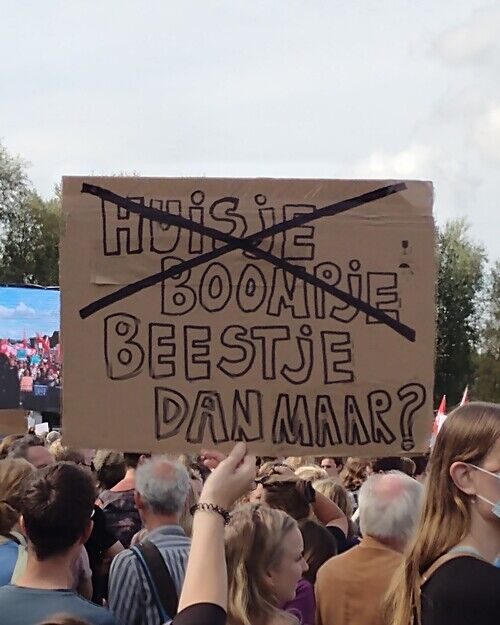 HUISJE
BOOMPJE
BEESTJE
DAN MAAR?